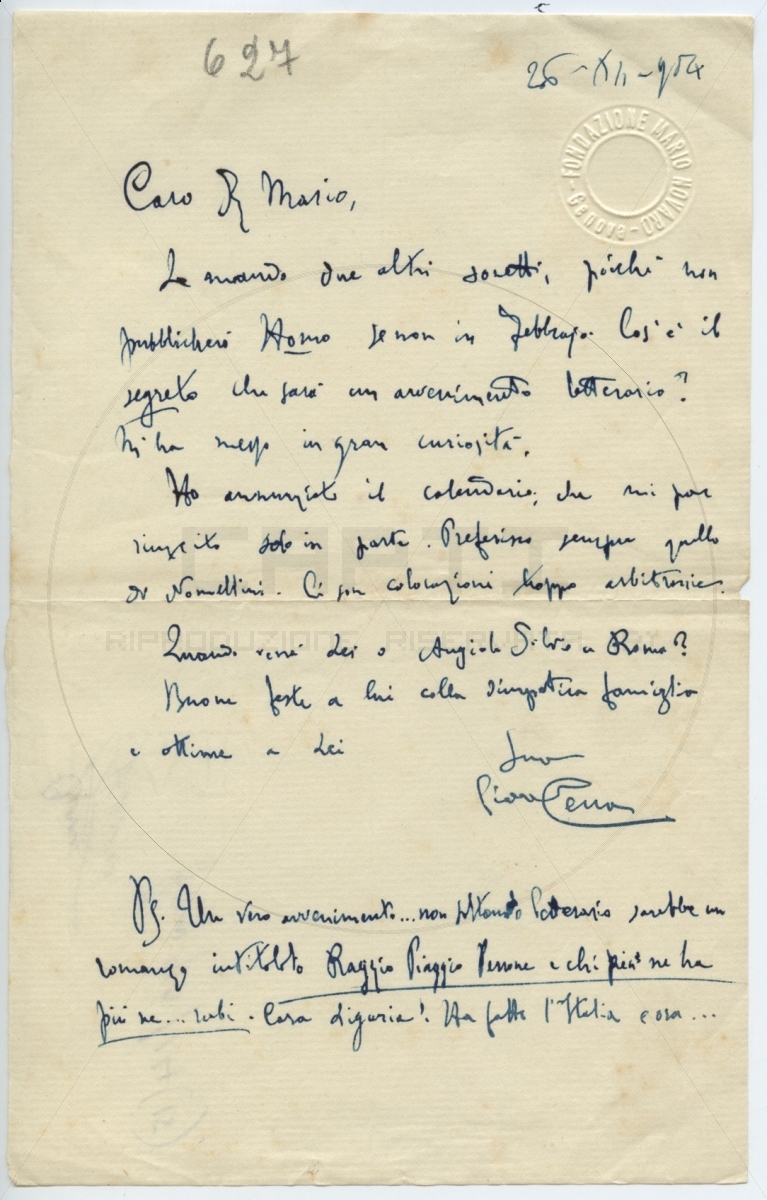 627
26-XII-904
FONDAZIONE MARIO NOVARO - Genova -
Caro Mario,
Le mando due altri sonetti, poichè non
pubblicherò Homo se non in Febbrajo. Cos'è il
segreto che sarà un avvenimento letterario?
Mi ha messo in gran curiosità.
Ho annunziato il calendario, che mi par
riuscito solo in parte. Preferisco sempre quello
di Nomellini. Ci son colorazioni troppo arbitrarie.
Quando verrà Lei o Angiolo Silvio a Roma?
Buone feste a lui colla simpatica famiglia
e ottime a Lei
Suo
Giov Cena
PS. Un vero avvenimento... non soltanto letterario sarebbe un
romanzo intitolato Raggio Piaggio Perrone e chi più ne ha
più ne... rubi. Cara Liguria! Ha fatto l'Italia e ora...
RIPRODUZIONE RISERVATA